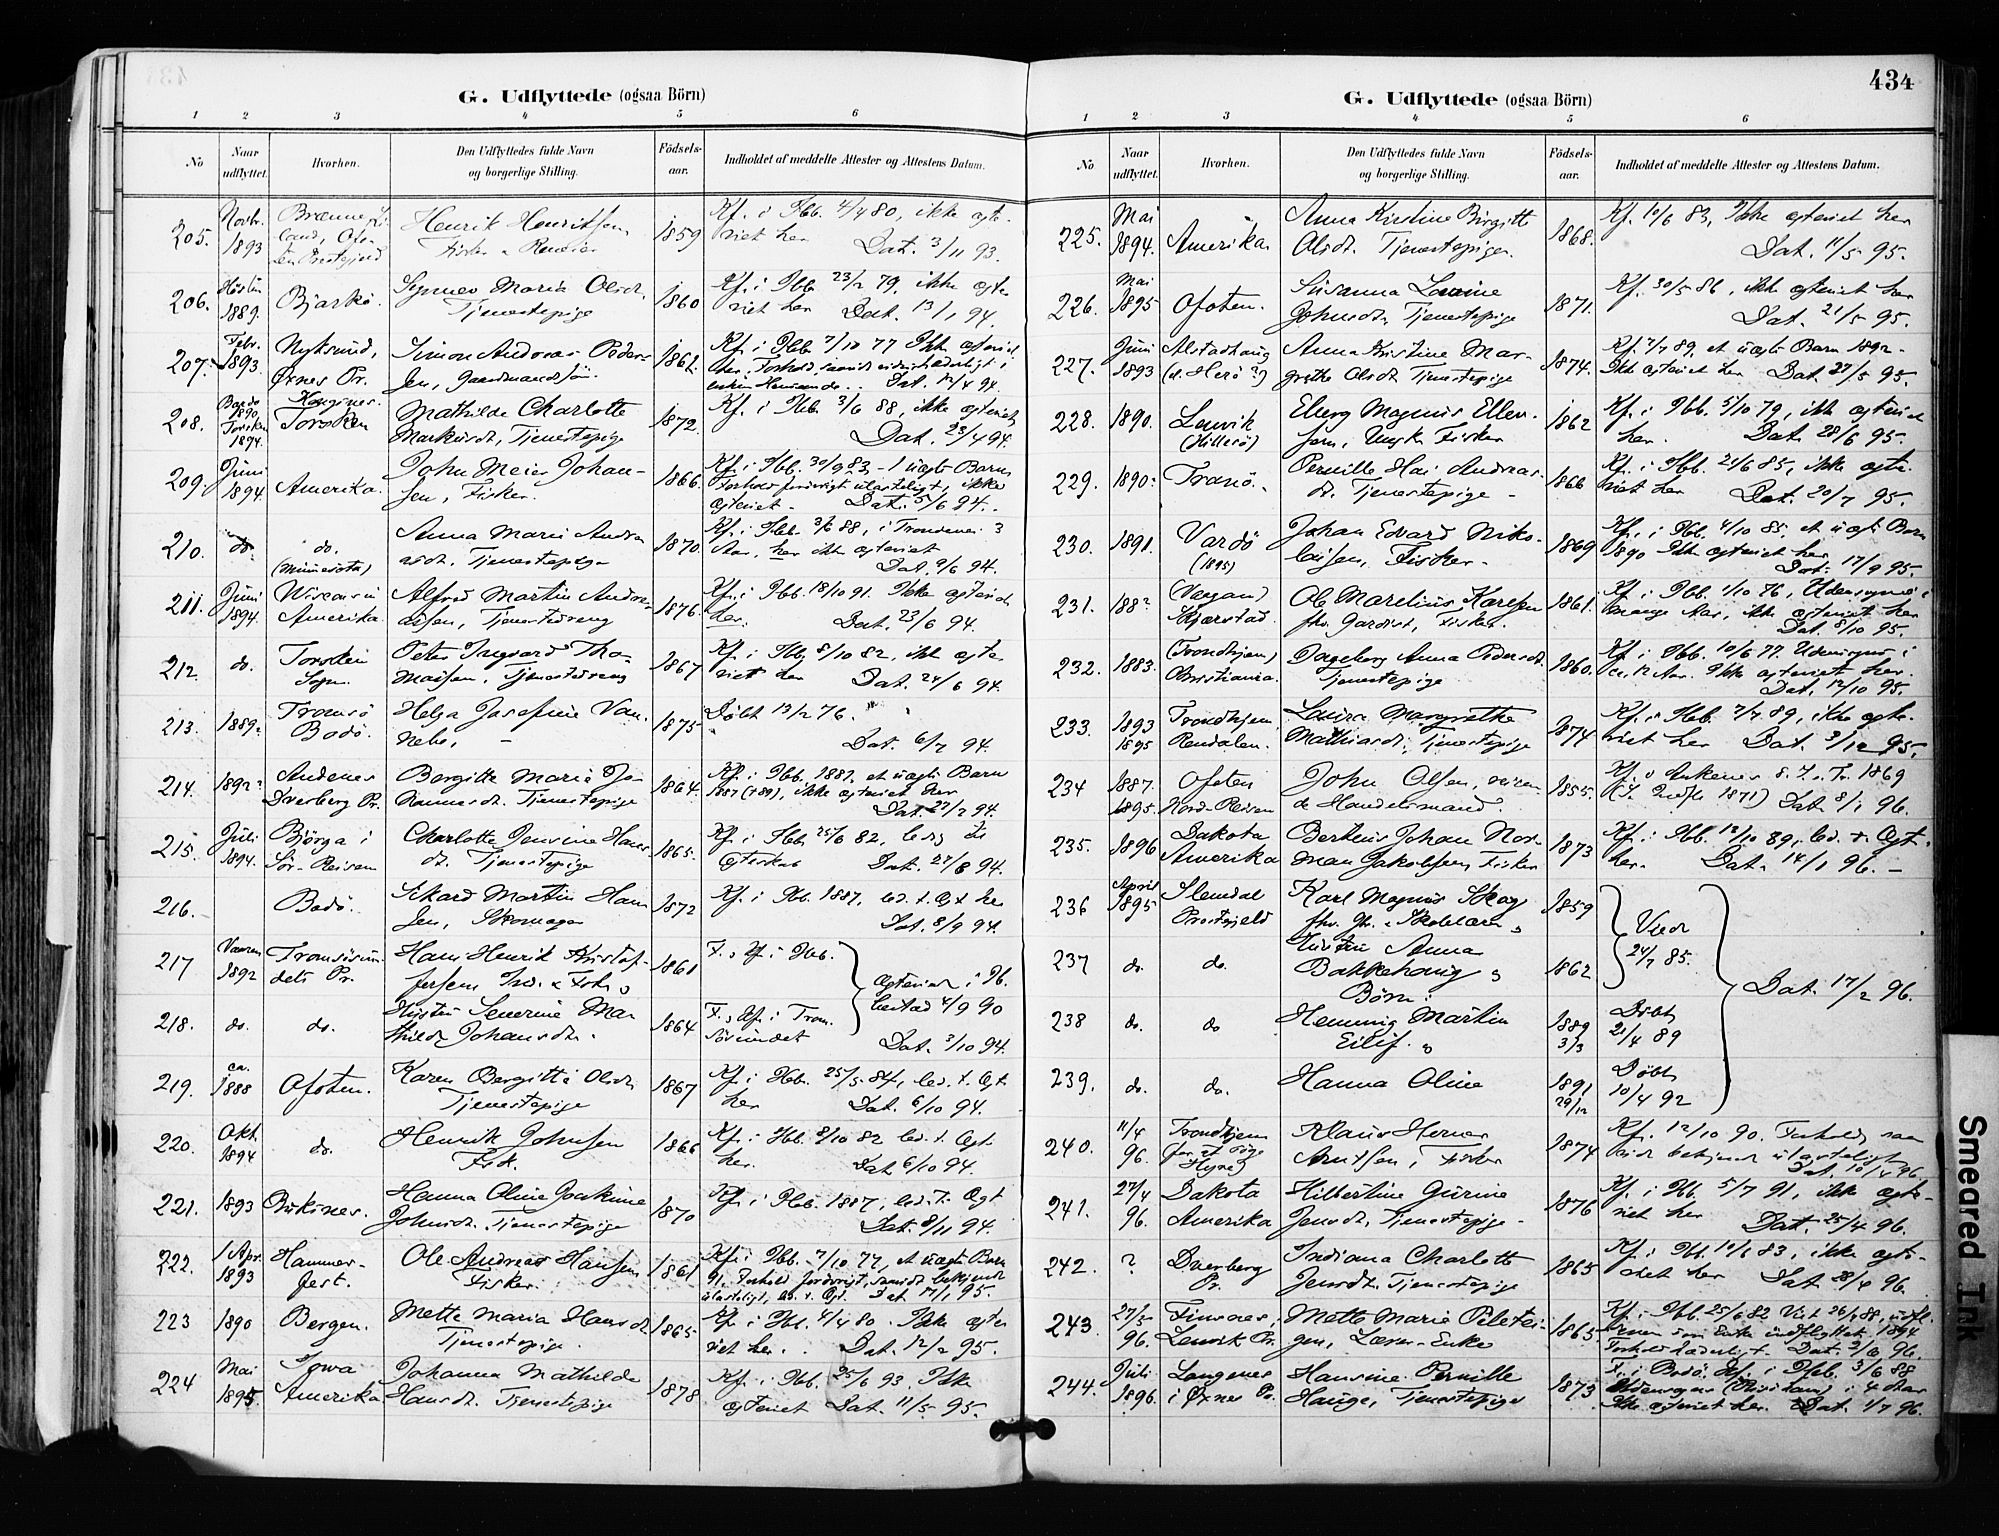 434
G. Udflyttede (ogsaa Börn)
1 2 3 4 5 6
No
Naar udflyttet.
Hvorhen.
Den Udflyttedes fulde Navn og borgerlige Stilling.
Födsels-aar.
Indholdet af meddelte Attester og Attestens Datum.
205. Novbr. 1893
Henrik Henriksen 1859
Kf. i Ibb. 4/4 80, ikke ægte-
viet her Dat. 3/11 93.
206. Hösten 1889. Bjarkö. Maria Olsdr. Tjenestepige 1860
Kf. i Ibb. 23/2 79, ikke ægte
viet her Dat. 13/1 94.
207. Febr. 1893. Nyksund, Öxnes Pr. Simon Andreas Peder-
sen, Gaardmandssön. 1861.
Kf. i Ibb. 7/10 77 Ikke ægteviet
Dat. 12/4 94.
208. Torsken 1894. Torsken Mathilde Charlotte
Markusdr, Tjenestepige 1872.
Kf. i Ibb. 3/6 88, ikke ægteviet
Dat. 23/4 94.
209. Juni 1894. Amerika. John Meier Johan-
sen, Fisker. 1866.
Kf. i Ibb. 30/9 83 - 1 uægte Barn
ægteviet. Dat. 5/6 94.
210. do. do. (Minnesota) Anna Marie Andre-
asdr. Tjenestepige 1870.
Kf. i Ibb. 3/6 88, i Trondenes 3
Aar, her ikke ægteviet
Dat. 9/6 94.
211. Juni 1894 Wisconsin Amerika. Alfred Martin Andre-
assen, Tjenestedreng 1876.
Kf. i Ibb. 18/10 91. Ikke ægteviet
her. Dat. 23/6 94.
212. do. Torsken Sogn. Peter Ingvard Tho-
massen, Tjenestedreng 1867
Kf. i Ibb. 8/10 82, ikke ægte
viet her Dat. 24/6 94.
213. 1889. Tromsö Bodö. Helga Josefine Van- 1875
Döbt 13/2 76.
Dat. 6/7 94.
214. 1892? Andenes Dverberg Pr. Bergitte Maria Jo-
hannesdr. Tjenestepige 1864.
Kf. i Ibb. 1881. et uægte Barn
1887 (+89), ikke ægteviet her
Dat. 27/7 94.
215. Juli 1894. Björga i Sör-Reisen Charlotte Jensine Hans-
dr. Tjenestepige 1865.
Kf. i Ibb. 25/6 82, ledig til
Ægteskab Dat. 27/8 94.
216. Bodö. Sikard Martin Han-
sen, Skomager 1872
Kf. i Ibb. 1887, led. t. Ægt her
Dat. 8/9 94.
217 Vaaren 1892 Tromsösun-
dets Pr. Hans Henrik Kristof-
fersen Ind. & Fisk. 1861
F. & Kf. i Ibb.
Ægteviet i Ib-
bestad 4/9 90
218. do. do. Kirsten Severine Ma-
thilde Johansdr. 1864
F. & Kf. i Trom-
sösundet
Dat. 3/10 94.
219. ca. 1888 Ofoten. Karen Bergitte Olsdr.
Tjenestepige 1867
Kf. i Ibb. 25/5 84, led. t. Ægt.
her Dat. 6/10 94.
220. Okt. 1894 do. Henrik Johnsen
Fisk. 1866
Kf. i Ibb. 8/10 82 led. t. Ægt.
her. Dat. 6/10 94.
221. 1893 Hanna Oline Joakime
Johnsdr. Tjenestepige 1870
Kf. i Ibb. 1887, led. t. Ægt
Dat. 8/11 94.
222. 1 Apr. 1893 Hammer-
fest. Ole Andreas Hansen
Fisker. 1861
Kf. i Ibb. 7/10 77, et uægte Barn
91, Forhold forövrigt, saavidt bekjendt
ulasteligt, led. t. Ægt. Dat. 17/1 95.
223 1890 Bergen. Mette Maria Hansdr
Tjenestepige. 1865.
Kf. i Ibb. 4/4 80. Ikke ægte
viet her. Dat. 12/2 95.
224 Mai 1895 Iowa Amerika Johanna Mathilde
Hansdr. Tjenestepige 1878
Kf. i Ibb. 25/6 93, Ikke
ægteviet Dat. 11/5 95.
G. Udflyttede (ogsaa Börn)
1 2 3 4 5 6
No
Naar udflyttet.
Hvorhen.
Den Udflyttedes fulde Navn og borgerlige Stilling.
Födsels-aar.
Indholdet af meddelte Attester og Attestens Datum.
225. Mai 1894. Amerika. Anna Kirstine Birgitte
Olsdr. Tjenestepige. 1868.
Kf. 10/6 83, Ikke ægteviet her
Dat. 11/5 95.
226. Mai 1895 Ofoten. Susanna Lovise
Johnsdr. Tjenestepige 1871.
Kf. 30/5 86, ikke ægteviet her
Dat. 21/5 95.
227. Juni 1893 Alstadhaug (el. Herö?) Anna Kristine Mar-
grethe Olsdr. Tjenestepige 1874.
Kf. 7/7 89, et uægte Barn 1892-
Ikke ægteviet her Dat. 27/5 95.
228. 1890. Lenvik (Hillesö) Eberg Magnus Ellev-
sen, Ungk. Fisker 1862
Kf. i Ibb. 5/10 79, ikke ægteviet
her. Dat. 28/6 95.
229. 1890. Tranö. Pernille Andreas-
dr. Tjenestepige - 1866
Kf. i Ibb. 21/6 85, ikke ægte-
viet her Dat. 20/7 95.
230. 1891. Vardö (1895) Johan Edvard Niko-
laisen, Fisker. 1869
Kf. i Ibb. 4/10 85, et uægte Barn
1890 Ikke ægteviet her
Dat. 17/9 95.
231. 188? (Vaagan) Kjærstad. Ole Marelius Karlsen
fhv. Gardist, Fisker. 1861.
Kf. i Ibb. 1/10 76, Udensogns i
mange Aar, ikke ægteviet her
Dat. 8/10 95.
232. 1883. (Trondhjem) Christiania. Dageborg Anna Pedersdr.
Tjenestepige 1860.
Kf. i Ibb. 10/6 77. Udensogns i
ca. 12 Aar. Ikke ægteviet her.
Dat. 12/10 95.
233. 1893 1895 Trondhjem Rendalen. Laura Margrethe
Mathiasdr. Tjenestepige 1874
Kf. i Ibb. 7/7 89, ikke ægte-
viet her Dat. 3/12 95.
234 1887. 1895. Ofoten Nord-Reisen John Olsen,
Handelsmand 1855.
Kf. i Ankenes 8. S. e. Tr. 1869
Dat. 8/1 96.
235. 1896 Dakota Amerika Bertinus Johan Nor-
man Jakobsen, Fisker 1873
Kf. i Ibb. 12/10 89, led. t. Ægt.
her. Dat. 14/1 96. -
236 April 1895 Slemdal Præstegjeld Karl Magnus Skog
1859
237 do. do. Anna
Bakkehaug 1862
Viede
24/7 85.
Börn:
238 do. do Hemming Martin
Eilif. 1889 3/3
Döbt
21/4 89
239. do. do. Hanna Oline 1891 29/12
Döbt
10/4 92
Dat. 17/2 96.
240. 11/4 96. Trondhjem (for at söge Hyre) Klaus Herner
Arntsen, Fisker 1874
Kf. 12/10 90. Forhold saa-
vidt bekjendt ulasteligt
Dat. 10/4 96.
241. 27/4 96. Dakota Amerika Hilbertine Gurine
Jensdr. Tjenestepige. 1876
Kf. i Ibb. 5/7 91, ikke ægte-
viet her Dat. 25/4 96.
242. ? Dverberg Pr. Indiana Charlotte
Jensdr. Tjenestepige 1865
Kf. i Ibb. 10/6 83, ikke ægte-
viet her Dat. 28/4 96.
243. 27/5 96. Finsnes, Lenvik Pr. Mette Marie
Lærer-Enke 1865
Kf. i Ibb. 25/6 82 Viet 26/1 88, udfl.
som Enke indflyttet 1894
Forhold hæderligt. Dat. 2/6 96.
244. Juli 1896. Langenes i Öxnes Pr. Hansine Pernille
Hauge, Tjenestepige 1873
F. i Bodö, Kf. i Ibb. 3/6 88
Udensogns i 4 Aar
Ikke ægteviet her. Dat. 1/7 96.
Smeared Ink